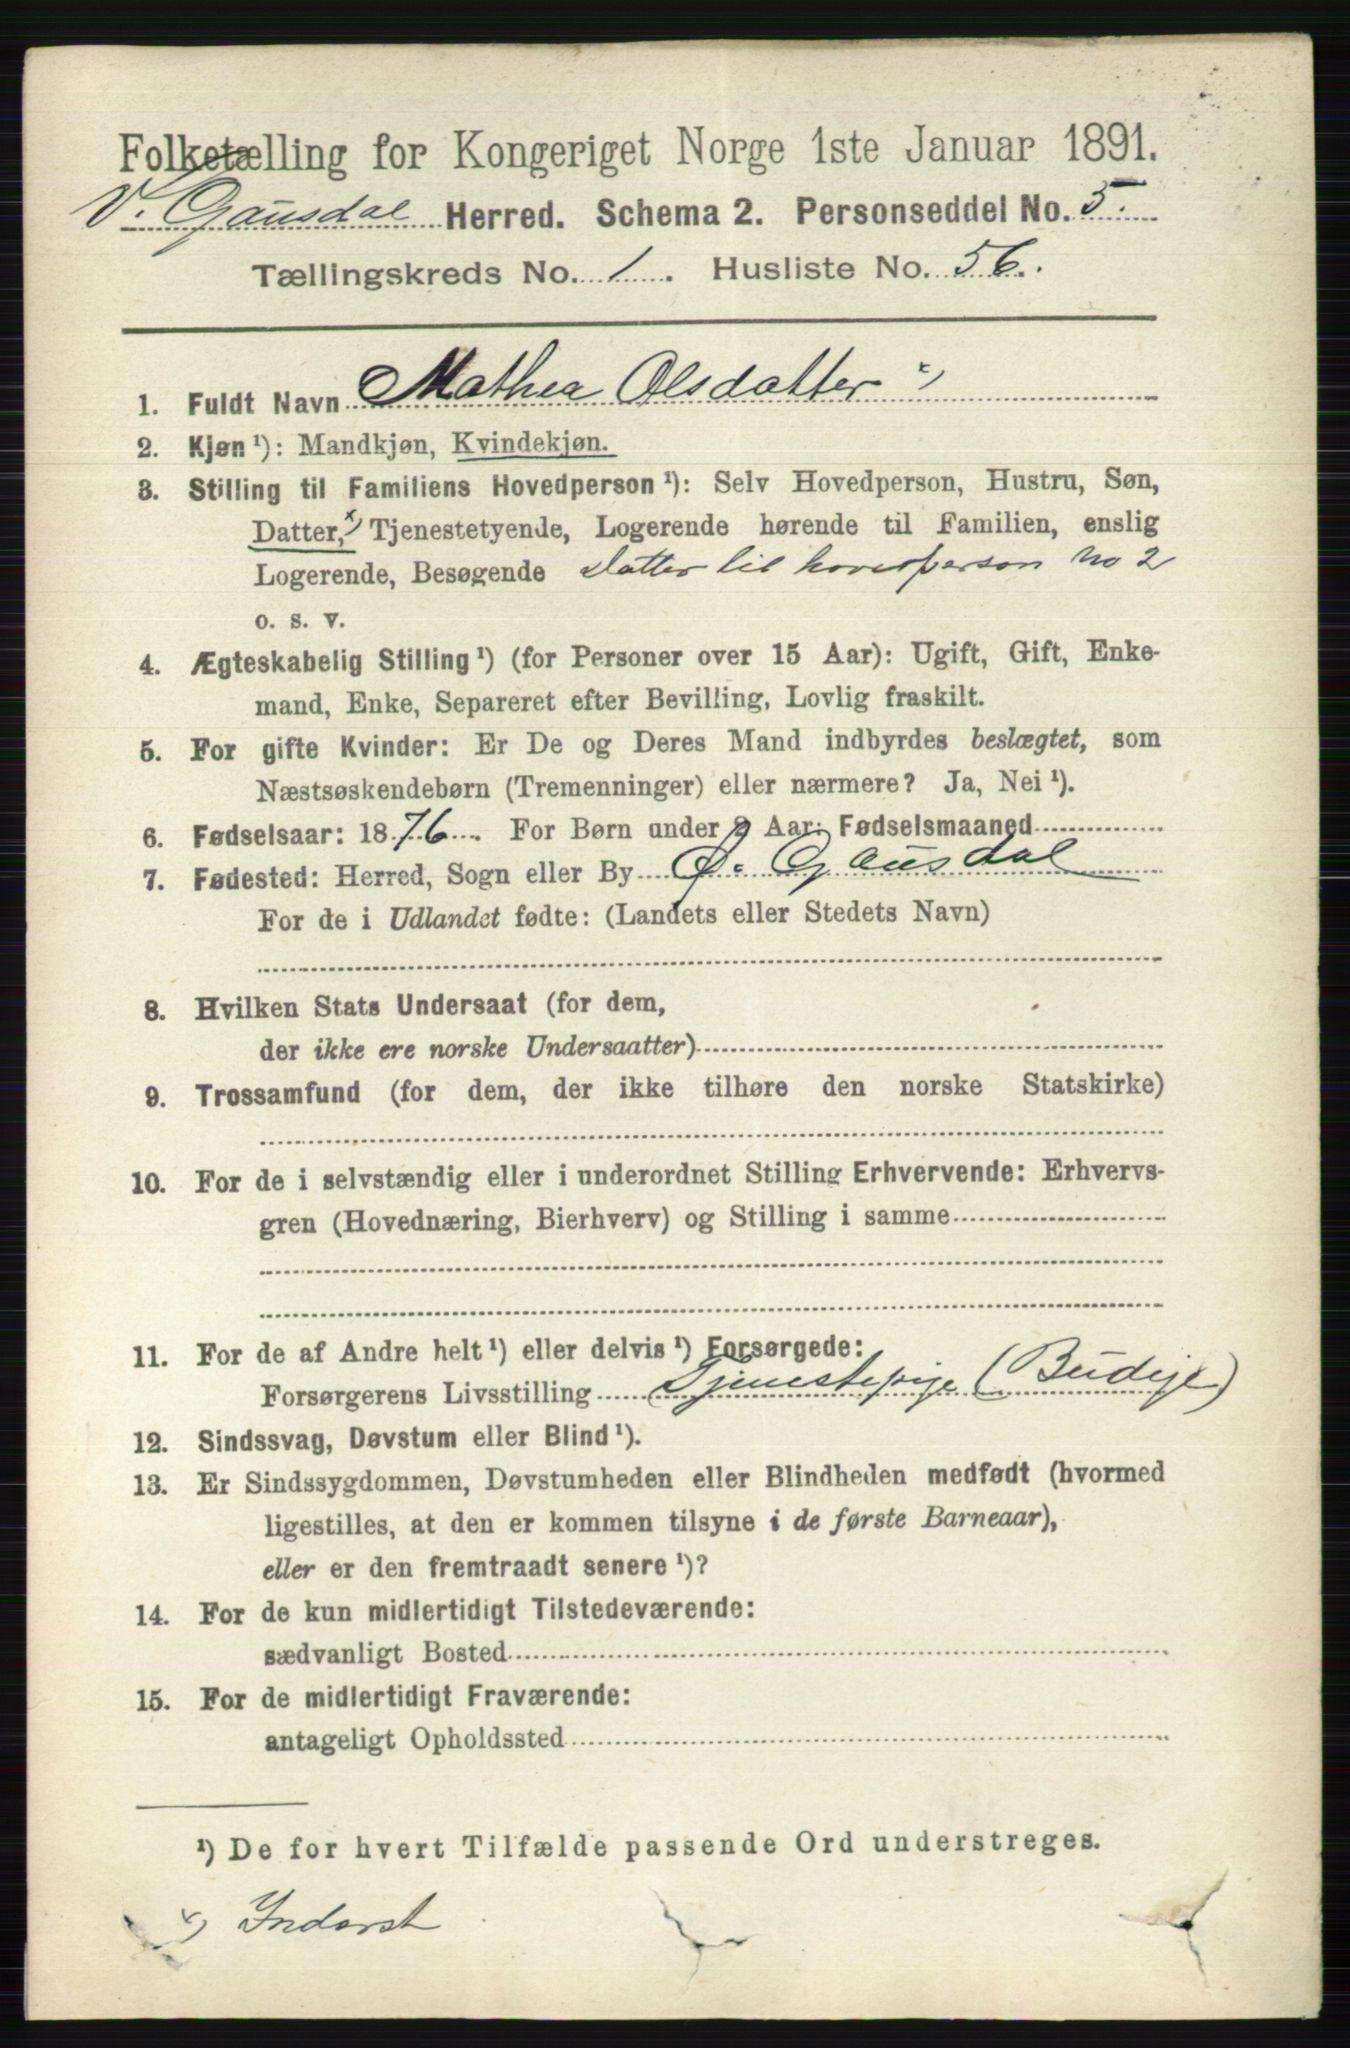 Folketælling for Kongeriget Norge 1ste Januar 1891.
V. Gausdal Herred. Schema 2. Personseddel No. 5.
Tællingskreds No. 1. Husliste No. 56.
1. Fuldt Navn Mathea Olsdatter x)
2. Kjøn ¹): Mandkjøn, Kvindekjøn.
3. Stilling til Familiens Hovedperson ¹): Selv Hovedperson, Hustru, Søn,
Datter, x) Tjenestetyende, Logerende hørende til Familien, enslig
Logerende, Besøgende Datter til hovedperson no 2
o. s. v.
4. Ægteskabelig Stilling ¹) (for Personer over 15 Aar): Ugift, Gift, Enke-
mand, Enke, Separeret efter Bevilling, Lovlig fraskilt.
5. For gifte Kvinder: Er De og Deres Mand indbyrdes beslægtet, som
Næstsøskendebørn (Tremenninger) eller nærmere? Ja, Nei ¹).
6. Fødselsaar: 1876. For Børn under 2 Aar: Fødselsmaaned
7. Fødested: Herred, Sogn eller By Ø. Gausdal
For de i Udlandet fødte: (Landets eller Stedets Navn)
8. Hvilken Stats Undersaat (for dem,
der ikke ere norske Undersaatter)
9. Trossamfund (for dem, der ikke tilhøre den norske Statskirke)
10. For de i selvstændig eller i underordnet Stilling Erhvervende: Erhvervs-
gren (Hovednæring, Bierhverv) og Stilling i samme
11. For de af Andre helt ¹) eller delvis ¹) Forsørgede:
Forsørgerens Livsstilling Tjenestepige (Budeje)
12. Sindssvag, Døvstum eller Blind ¹).
13. Er Sindssygdommen, Døvstumheden eller Blindheden medfødt (hvormed
ligestilles, at den er kommen tilsyne i de første Barneaar),
eller er den fremtraadt senere ¹)?
14. For de kun midlertidigt Tilstedeværende:
sædvanligt Bosted
15. For de midlertidigt Fraværende:
antageligt Opholdssted
¹) De for hvert Tilfælde passende Ord understreges.
x) Inderst